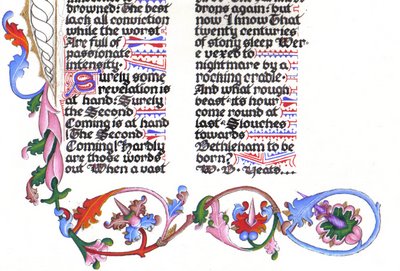 drowned: The best
lack all conviction
while the worst
Are full of
passionate
intensity.
Surely some
revelation is
at hand: Surely
the Second
Coming is at hand
The Second
Coming! Hardly
are those words
out When a vast
drops again: but
now I know That
twenty centuries
of stony sleep Wer-
e vexed to
nightmare by a
rocking cradle.
And what rough
beast its hour
come round at
last Slouches
towards
Bethleham to be
born?
W. B. Yeats...